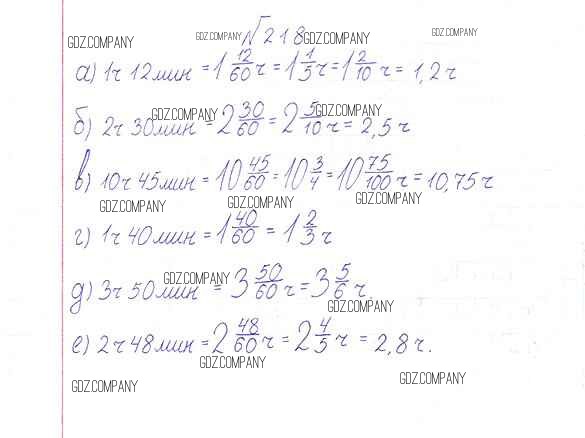 GDZ.COMPANY GDZ.COMPANY №218 GDZ.COMPANY GDZ.COMPANY
а) 1ч 12мин = 1 12/60 ч = 1 1/5 ч = 1 2/10 ч = 1,2 ч
GDZ.COMPANY GDZ.COMPANY
б) 2ч 30мин = 2 30/60 = 2 5/10 ч = 2,5 ч
в) 10ч 45мин = 10 45/60 = 10 3/4 = 10 75/100 ч = 10,75 ч
GDZ.COMPANY GDZ.COMPANY GDZ.COMPANY
г) 1ч 40мин = 1 40/60 = 1 2/3 ч
GDZ.COMPANY
д) 3ч 50мин = 3 50/60 ч = 3 5/6 ч.
GDZ.COMPANY
е) 2ч 48мин = 2 48/60 ч = 2 4/5 ч = 2,8 ч.
GDZ.COMPANY
GDZ.COMPANY GDZ.COMPANY